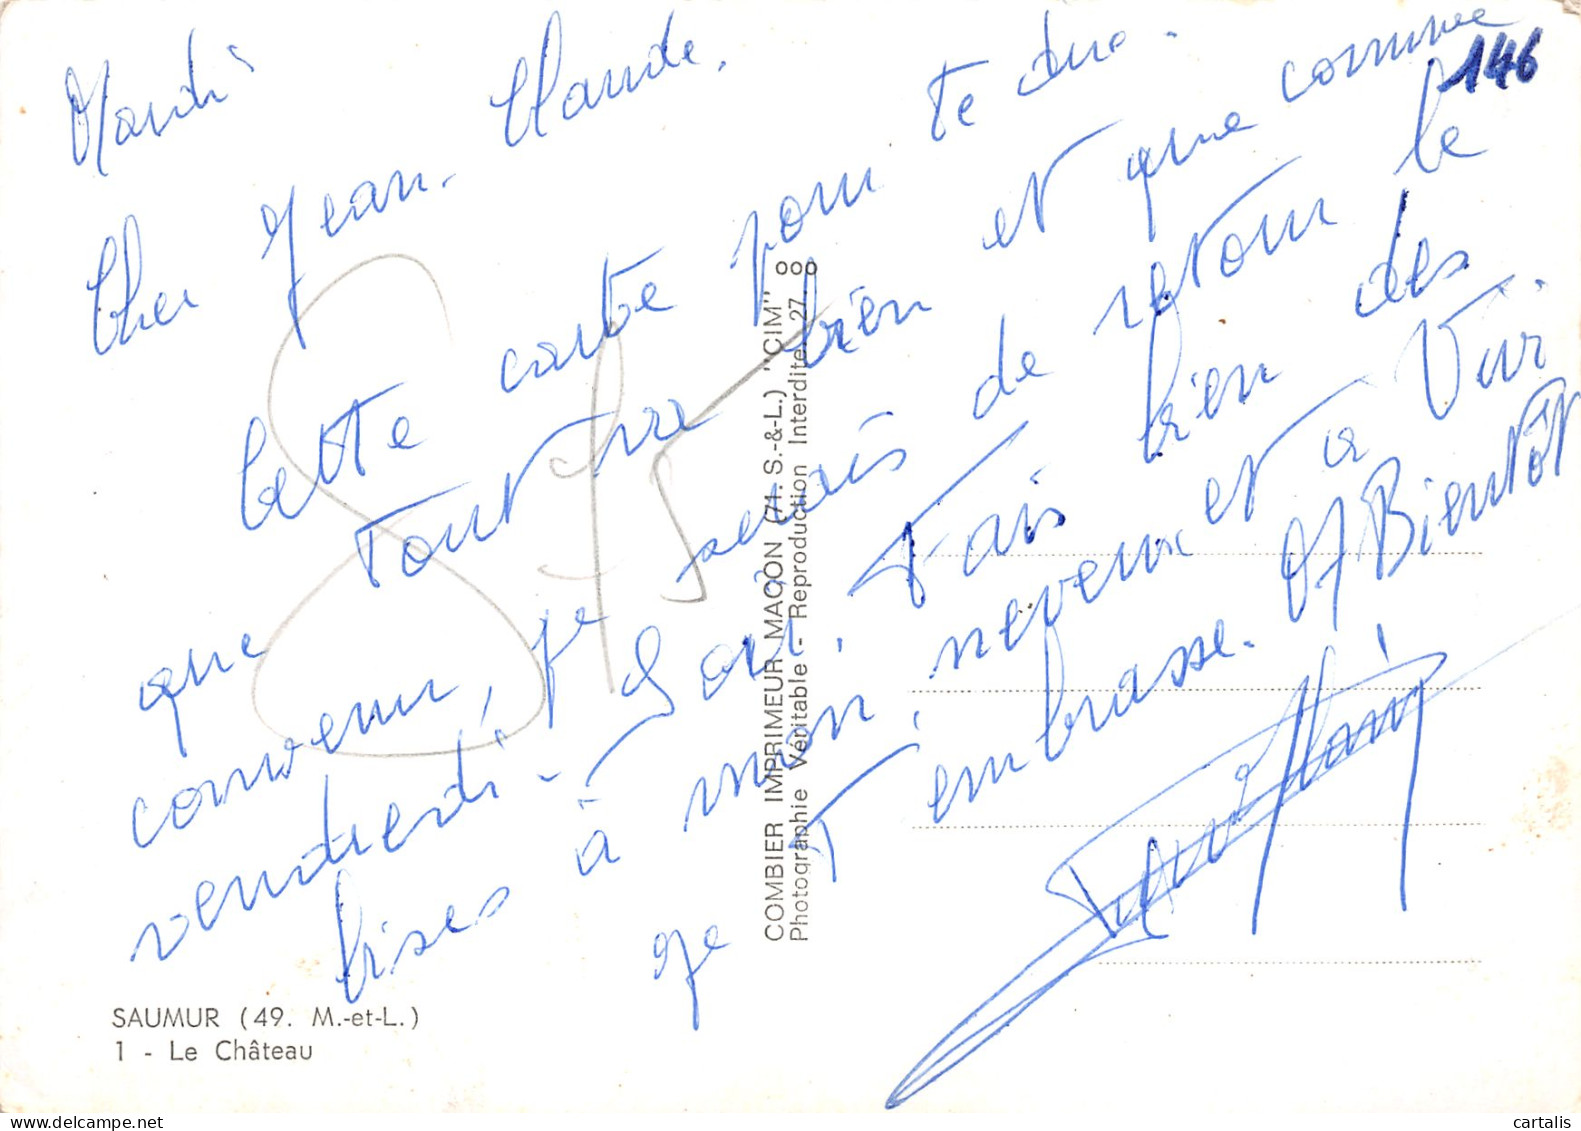 Mardi
Cher Jean-Claude,
Cette carte pour te dire
que tout va bien et que comme
convenu, je serais de retour le
vendredi - Soir. Fais bien des
bises à mon neveu. et à Vir.
Je T'embrasse. A Bientôt
146
SAUMUR (49. M.-et-L.)
1 - Le Château
COMBIER IMPRIMEUR MACON (71. S.-&-L.) "CIM"
Photographie Véritable - Reproduction Interdite. 27.
cartalis